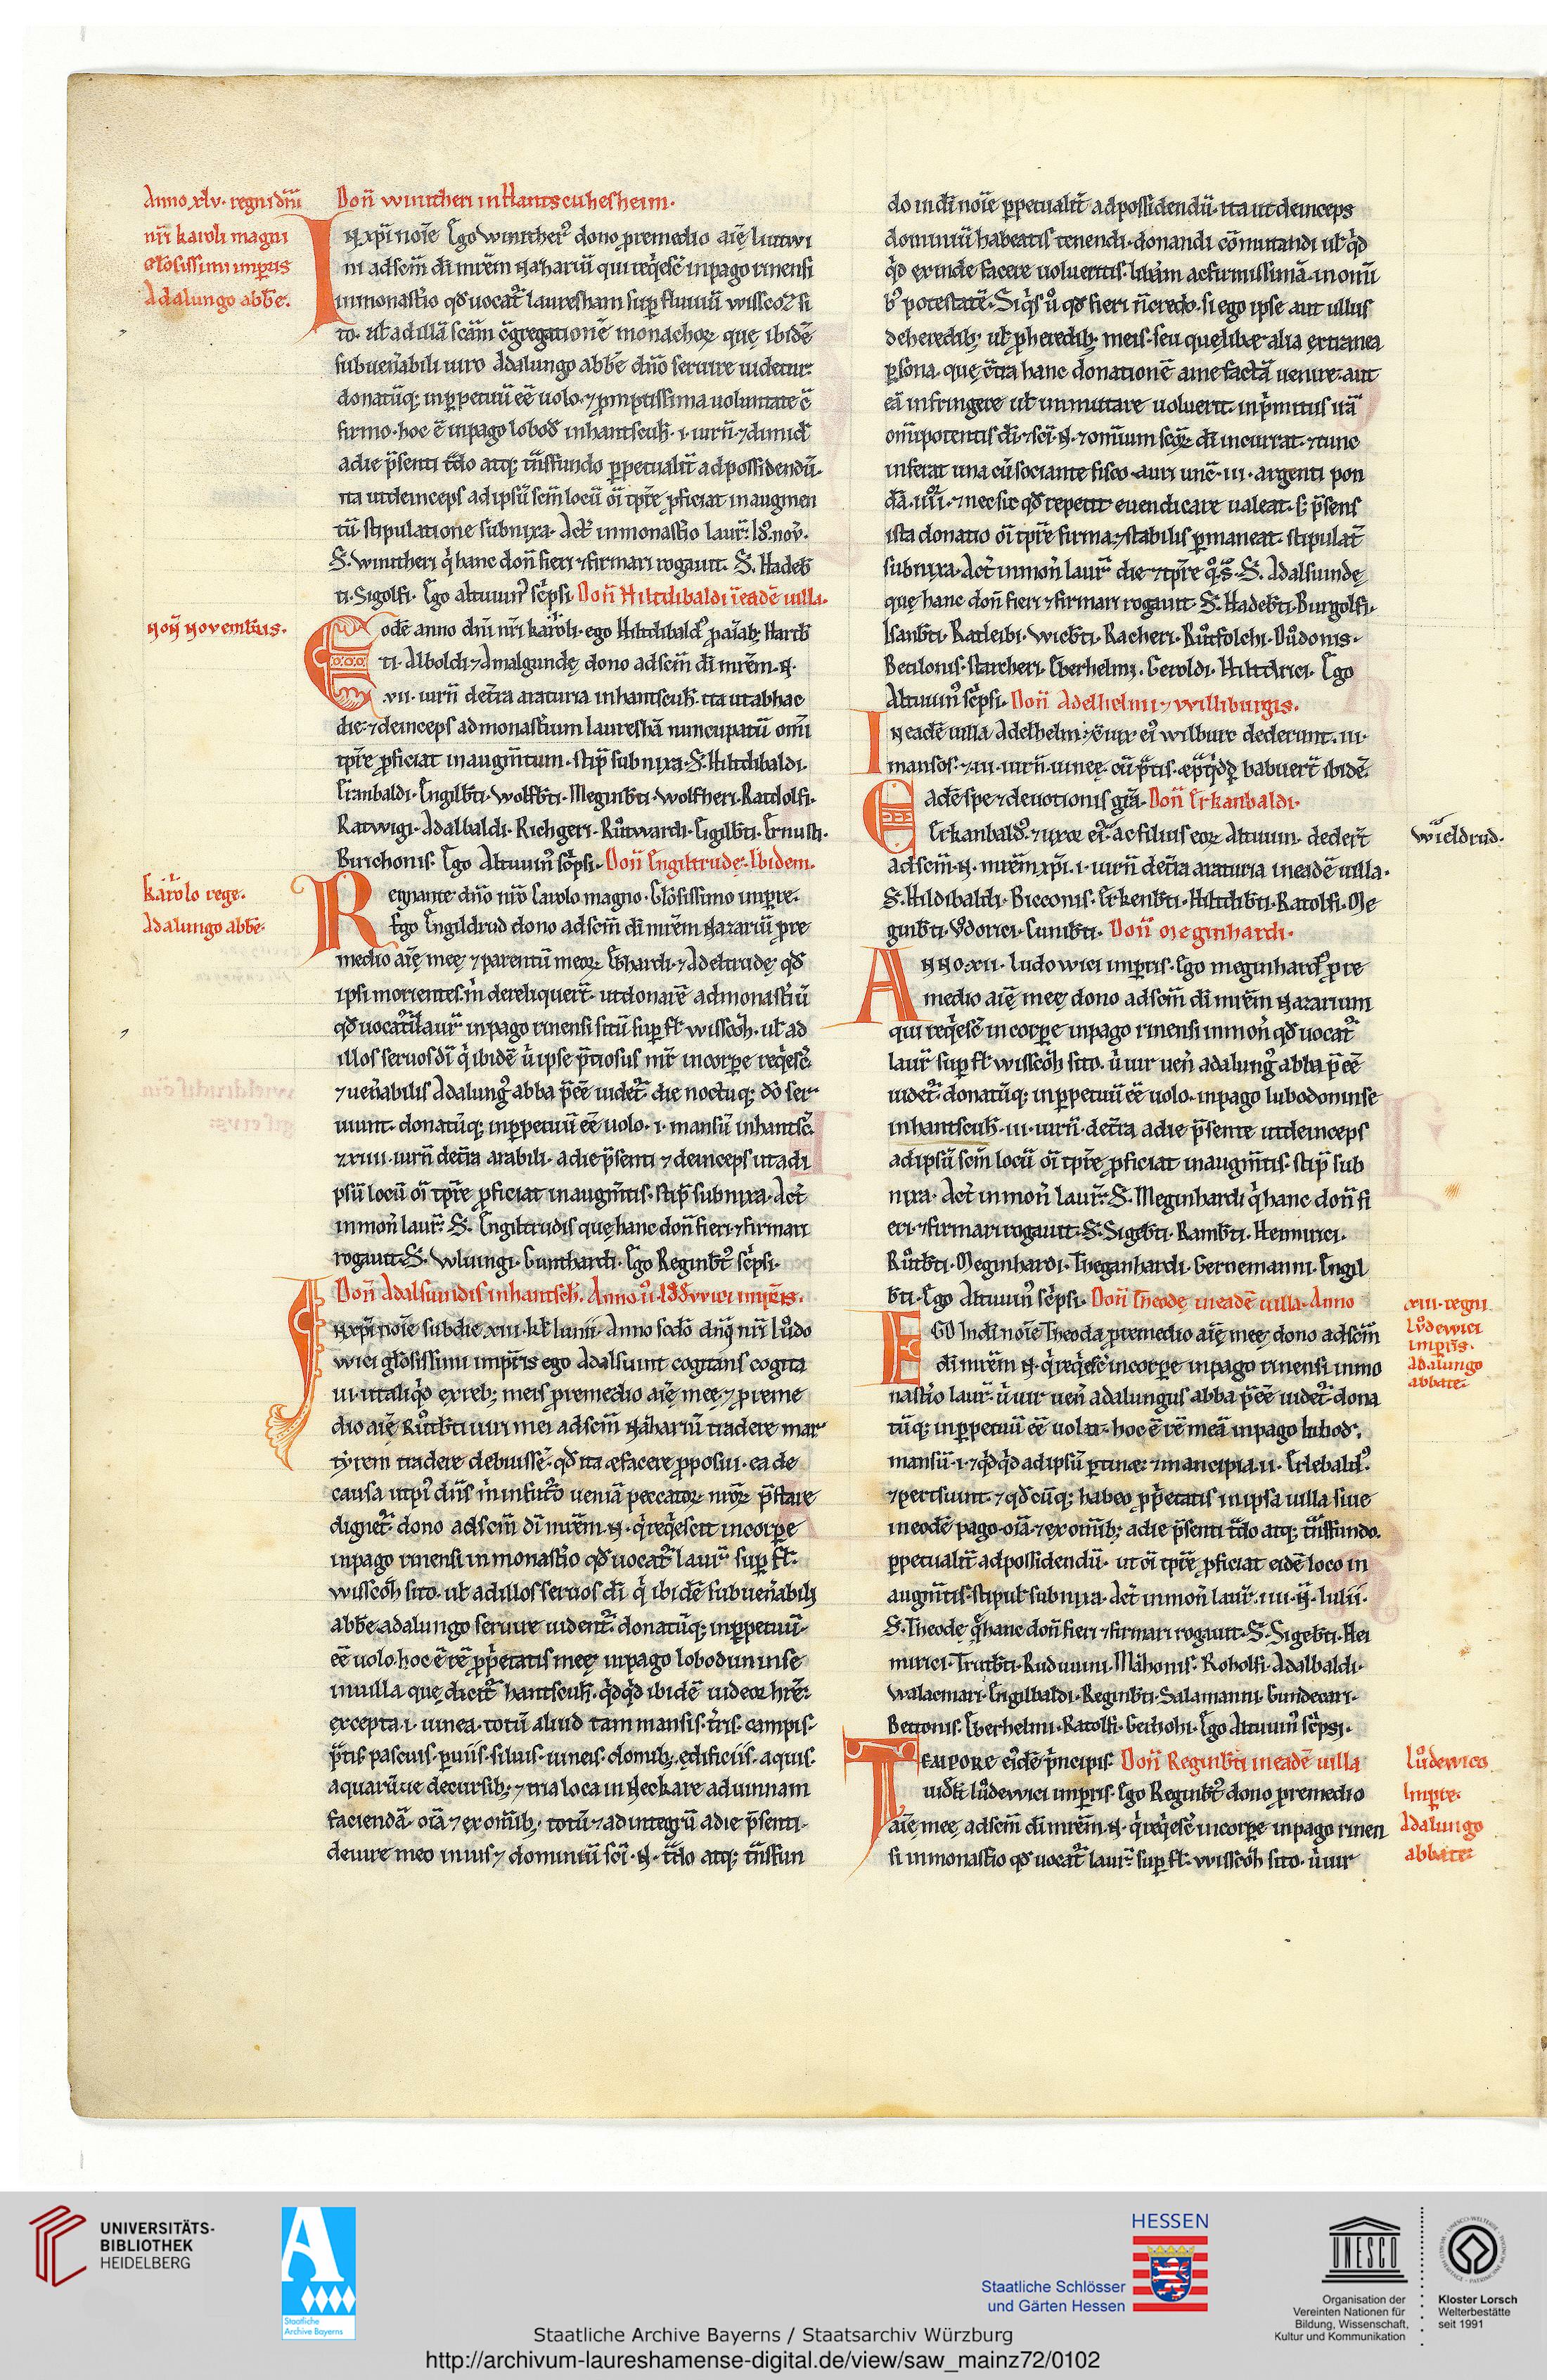 Anno xlv. regni dn̄i
nr̄i karoli magni
glōsissimi imꝑris
Adalungo abb̄e.
Don̄ wintheri in Hantscuhesheim.
IN xp̄i noīe Ego winither᾽ dono ꝓ remedio aīe liutwi
ni ad sc̄m dī mr̄em Naẓariū qui req̇esc̄ in pago rinensi
in monast̄io qd̄ uocat᾽ lauresham sup fluuiū wisscoz si
to. ul̄ ad illā sc̄am c̄gregationē monachoꝝ que ibidē
sub uen̄abili uiro Adalungo abb̄e dn̄o seruire uidetur
donatūq; in ꝑpetuū eē uolo. ⁊ ꝓmptissima uoluntate c̄
firmo. hoc ē in pago lobod̄ in hantscuh̄. i. iurn̄. ⁊ dimid̄
a die p̄senti t̄do atq; t̄nsfundo ꝑpetualit̄ ad possidendū.
ita ut deinceps ad ipsū sc̄m locū oī tp̄re ꝓficiat in augmen
tū. stipulatione subnixa. Act̄ in monast̄io laur̄. id᾽. nov̄.
S. wintheri q̇ hanc don̄ fieri ⁊ firmari rogauit. S. Hadeb̄
ti. Sigolfi. Ego altuuin᾽ sc̄psi. Don̄ Hiltdibaldi ī eadē uilla.
Non̄ Novembris.
Eodē anno dn̄i nr̄i karoli. ego Hiltdibald᾽ ꝓ aīab; Hartb̄
ti. Alboldi ⁊ Amalgunde dono ad sc̄m dī mr̄em. N.
xvii. iurn̄ de t̄ra araturia in hantscuh̄. ita ut ab hac
die ⁊ deinceps ad monast̄ium laureshā nuncupatū omi
tp̄re ꝓficiat in augm̄tum. stip̄ subnixa. S. Hiltdibaldi.
Eranbaldi. Engilb̄ti. Wolfb̄ti. Meginb̄ti. Wolfheri. Ratdolfi.
Ratwigi. Adalbaldi. Richgeri. Růtwardi. Eigilb̄ti. Ernusti.
Birichonis. Ego Altuuin᾽ sc̄psi. Don̄ Engiltrude. Ibidem.
Karolo rege.
Adalungo abb̄e.
Regnante dn̄o nr̄o Carolo magno. Glōsissimo imꝑre.
Ego Engildrud dono ad sc̄m dī mr̄em Naẓariū ꝓ re
medio aīe mee ⁊ parentū meoꝝ Ebhardi. ⁊ Adeltrude qd̄
ipsi morientes m̄ dereliquert̄. ut donarē ad monast̄iū
qd̄ uocat᾽ laur̄ in pago rinensi sitū sup fl̄ wisscoh̄. ul̄ ad
illos seruos dī q̇ ibidē u̇ ipse p̄tiosus mr̄ in corpe req̇esc̄.
⁊ uen̄abilis Adalung᾽ abba p̄eē uidet᾽. die noctuq; dō ser
uiunt. donatūq; in ꝑpetuū eē uolo. i. mansū in hantsc̄.
⁊ xiiii. iurn̄ de t̄ra arabili. a die p̄senti ⁊ deinceps ut ad i
psū locū oī tp̄re ꝓficiat in augm̄tis. stip̄ subnixa. Act̄
in mon̄ laur̄. S. Engiltrudis que hanc don̄ fieri ⁊ firmari
rogauit. S. Wluingi. Gunthardi. Ego Reginb̄t᾽ sc̄psi.
Don̄ Adalsuindis in hantsch̄. Anno ii. Lůdvvici imꝑris.
In xp̄i noīe sub die xiii. kl̄ Iunii. Anno scd̄o dn̄q nr̄i Lůdo
wici glōsissimi imꝑris ego Adalsuint cogitans cogita
ui. ut aliq̇d ex reb; meis ꝓ remedio aīe mee ⁊ ꝓ reme
dio aīe Růtb̄ti uiri mei ad sc̄m Naẓariū tradere mar
tẏrem tradere debuissē. qd̄ ita ⁊ facere ꝓposui. ea de
causa ut pi᾽ dn̄s m̄ in futuro ueniā peccatoꝝ nr̄oꝝ p̄stare
dignet᾽. dono ad sc̄m dī mr̄em. N. q̇ req̇escit in corpe
in pago rinensi in monast̄io qd̄ uocat᾽ laur̄ sup fl̄.
wisscoh̄ sito. ul̄ ad illos seruos dī q̇ ibidē sub uen̄abili
abb̄e adalungo seruire uident᾽. donatūq; in ꝑpetuū
eē uolo. hoc ē rē ꝓp̄etatis mee in pago loboduninse
in uilla que dicit᾽ hantscuh̄. q̇dq̇d ibidē uideor hr̄e.
excepta. i. uinea. totū aliud tam mansis. t̄ris. campis.
p̄tis. pascuis. ꝑuiis. siluis. uineis. domib; edificiis. aquis.
aquarūue decursib; ⁊ tria loca in Neckare ad uinnam
faciendā. oīa ⁊ ex omīb; totū ⁊ ad integrū a die p̄senti
de iure meo in ius ⁊ dominiū sc̄i. N. t̄do atq; t̄nsfun
do in dī noīe ꝑpetualit̄ ad possidendū. ita ut deinceps
dominiū habeatis tenendi. donandi cōmutandi ul̄ q̇d
q̇d exinde facere uolueritis. lib̄am ac firmissimā in omī
b᾽ potestatē. Siq̇s ů qd̄ fieri n̄ credo. si ego ipse aut ullus
de heredib; ul̄ ꝓheredib; meis. seu quelibet alia extranea
ꝑsona. que c̄tra hanc donationē a me factā uenire. aut
eā infringere ul̄ inmutare uoluerit. inp̄mitus irā
omīpotentis dī ⁊ sc̄i. N. ⁊ omnium sc̄oꝝ dī incurrat. ⁊ tunc
inferat una cū sociante fisco auri unc̄. iii. argenti pon
dā. iiii. ⁊ nec sic qd̄ repetit euendicare ualeat. s; p̄sens
ista donatio oī tp̄re firma ⁊ stabilis ꝑmaneat. stipulat̄
subnixa. Act̄ in mon̄ laur̄ die ⁊ tp̄re q̊ s̊. S. Adalsuinde
que hanc don̄ fieri ⁊ firmari rogauit. S. Hadeb̄ti. Burgolfi.
Isanb̄ti. Ratleibi. Wicb̄ti. Racheri. Růtfolchi. Důdonis.
Betilonis. Starcheri. Eberhelmi. Geroldi. Hiltdrici. Ego
Altuuin᾽ sc̄psi. Don̄ Adelhelmi ⁊ williburgis.
In eadē uilla Adelhelm᾽ ⁊ c̄iux ei᾽ wilburc dederunt. iii.
mansos. ⁊ iii. iurn̄. uinee. cū p̄tis. ⁊ q̇dq̇d habuert̄ ibidē.
Eadē spe ⁊ deuotionis gr̄a. Don̄ Erkanbaldi.
Erkanbald᾽. ⁊ uxor ei᾽. ac filius eoꝝ Altuuin. dedert̄
Wieldrud.
ad sc̄m. N. mr̄em xp̄i. i. iurn̄ de t̄ra araturia in eadē uilla.
S. Hildibaldi. Bicconis. Erkenb̄ti. Hiltdib̄ti. Ratolfi. Me
ginb̄ti. Vdorici. Cunib̄ti. Don̄ Meginhardi.
Anno. xii. Ludowici imꝑris. Ego meginhard᾽ ꝓ re
medio aīe mee dono ad sc̄m dī mr̄em Naẓarium
qui req̇esc̄ in corpe in pago rinensi in mon̄ qd̄ uocat᾽
laur̄ sup fl̄ wisscoh̄ sito. u̇ uir uen̄ adalung᾽ abba p̄eē
uidet᾽. donatūq; in ꝑpetuū eē uolo. in pago lubodoninse
in hantscuh̄. iii. iurn̄. de t̄ra a die p̄sente ut deinceps
ad ipsū sc̄m locū oī tp̄re ꝓficiat in augm̄tis. stip̄ sub
nixa. Act̄ in mon̄ laur̄. S. Meginhardi q̇ hanc don̄ fi
eri ⁊ firmari rogauit. S. Sigeb̄ti. Ramb̄ti. Heimirici.
Růtb̄ti. Meginhardi. Theganhardi. Gernemanni. Engil
b̄ti. Ego Altuuin᾽ sc̄psi. Don̄ Theode in eadē uilla. Anno
xiii. regni
Lůdewici
imꝑris.
Adalungo
abbate.
EGO In dī noīe Theoda ꝓ remedio aīe mee dono ad sc̄m
dī mr̄em N. q̇ req̇esc̄ in corpe in pago rinensi in mo
nast̄io laur̄. u̇ uir uen̄ adalungus abba p̄eē uidet᾽. dona
tūq; in ꝑpetuū eē uolo. hoc ē rē meā in pago lubod̄.
mansū. i. ⁊ q̇dq̇d ad ipsū ꝑtinet. ⁊ mancipia. ii. Erlebald᾽.
⁊ pertsuint. ⁊ qd̄cūq; habeo ꝓp̄etatis in ipsa uilla siue
in eodē pago. oīa ⁊ ex omīb; a die p̄senti t̄do atq; t̄nsfundo.
ꝑpetualit̄ ad possidendū. ut oī tp̄re ꝓficiat eidē loco in
augm̄tis. stipul̄ subnixa. Act̄ in mon̄ laur̄. iiii. N̄. Iulii.
S. Theode q̄ hanc don̄ fieri ⁊ firmari rogauit. S. Sigeb̄ti. Hei
mirici. Trutb̄ti. Ruduuini. Māhonis. Roholfi. Adalbaldi.
Walacmari. Engilbaldi. Reginb̄ti. Salamanni. Gundecari.
Bettonis. Eberhelmi. Ratolfi. Gerhohi. Ego Altuuin᾽ sc̄psi.
Tempore ei᾽dē p̄ncipis. Don̄ Reginb̄ti in eadē uilla
Lůdewico
Imꝑre.
Adalungo
abbate.
uidl̄t lůdewici imꝑris. Ego Reginb̄t᾽ dono ꝓ remedio
aīe mee ad sc̄m dī mr̄em. N. q̇ req̇esc̄ in corpe in pago rinen
si in monast̄io qd̄ uocat᾽ laur̄ sup fl̄. wisscoh̄ sito. u̇ uir
UNIVERSITÄTS-
BIBLIOTHEK
HEIDELBERG
Staatliche
Archive Bayerns
HESSEN
Staatliche Schlösser
und Gärten Hessen
UNESCO
Organisation der
Vereinten Nationen für
Bildung, Wissenschaft,
Kultur und Kommunikation
Kloster Lorsch
Welterbestätte
seit 1991
Staatliche Archive Bayerns / Staatsarchiv Würzburg
http://archivum-laureshamense-digital.de/view/saw_mainz72/0102